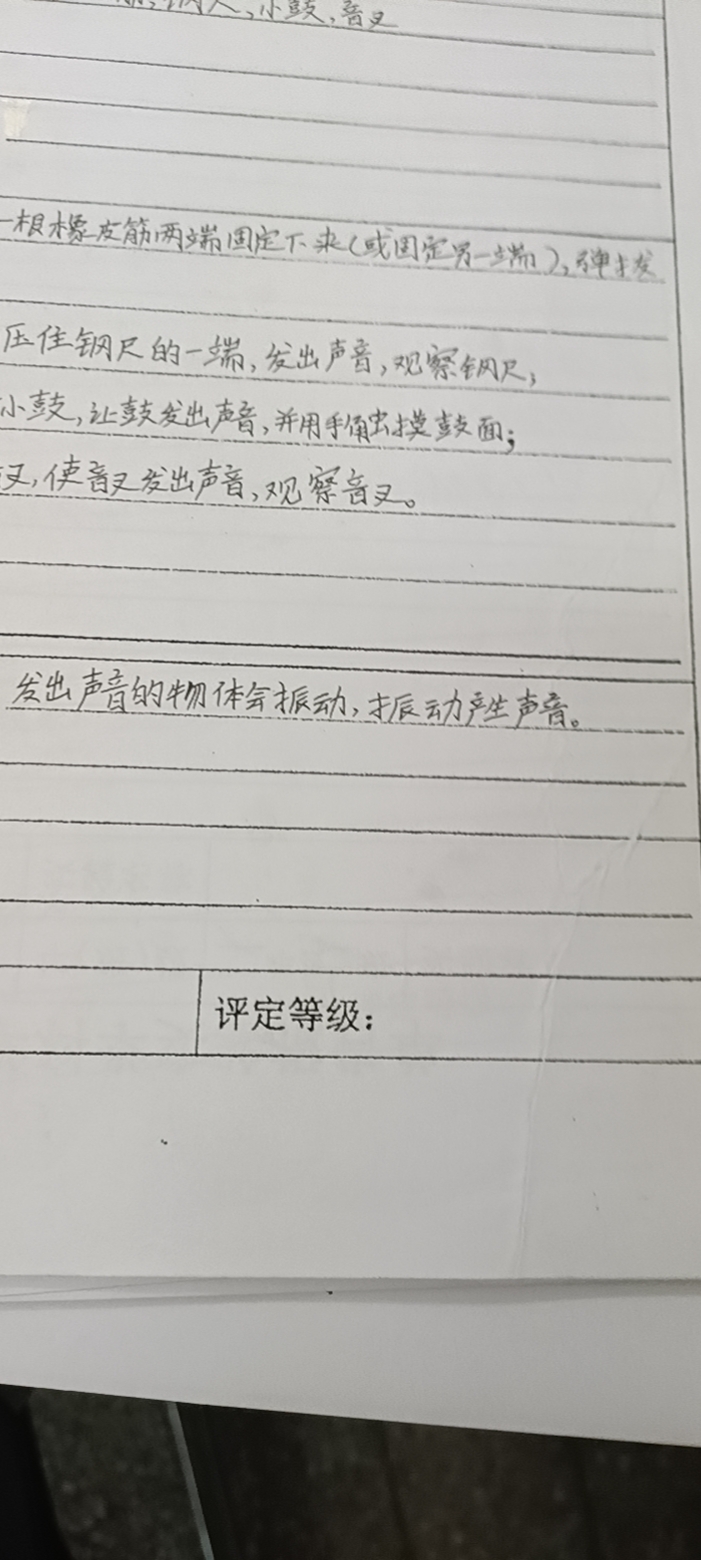 小鼓,音叉
一根橡皮筋两端固定下来(或固定另一端),弹拨
压住钢尺的一端,发出声音,观察钢尺;
小鼓,让鼓发出声音,并用手触摸鼓面;
叉,使音叉发出声音,观察音叉。
发出声音的物体会振动,振动产生声音。
评定等级: